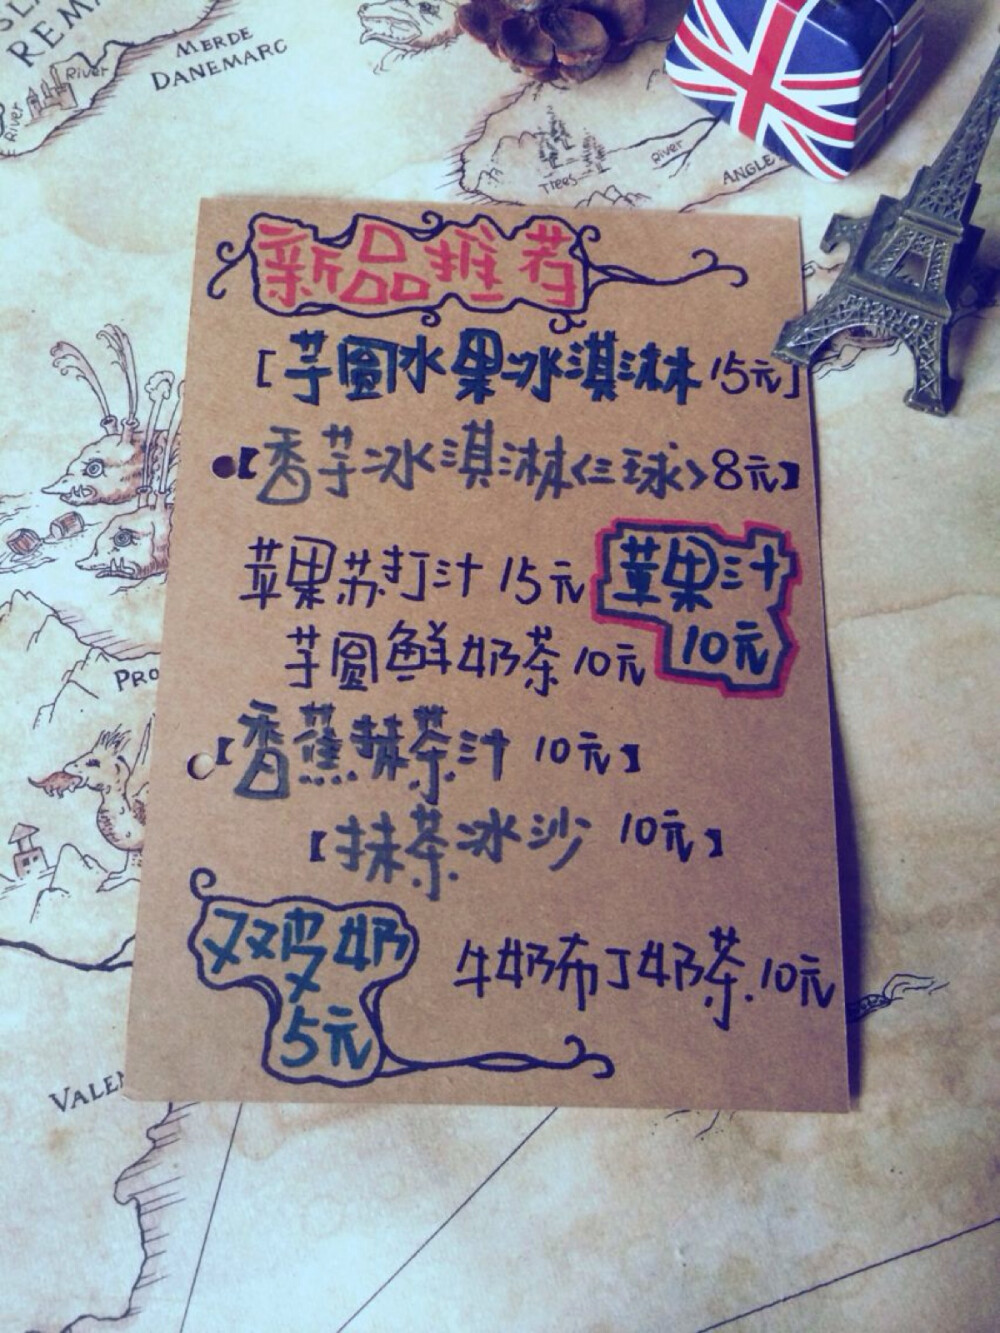 REMA
MERDE
DANEMARC
River
River
River
Trees
ANGLE
新品推荐
[芋圆水果冰淇淋 15元]
【香芋冰淇淋<三球>8元】
苹果苏打汁 15元
苹果汁
10元
芋圆鲜奶茶 10元
【香蕉抹茶汁 10元】
【抹茶冰沙 10元】
双皮奶
5元
牛奶布丁奶茶.10元
PRO
VALEN